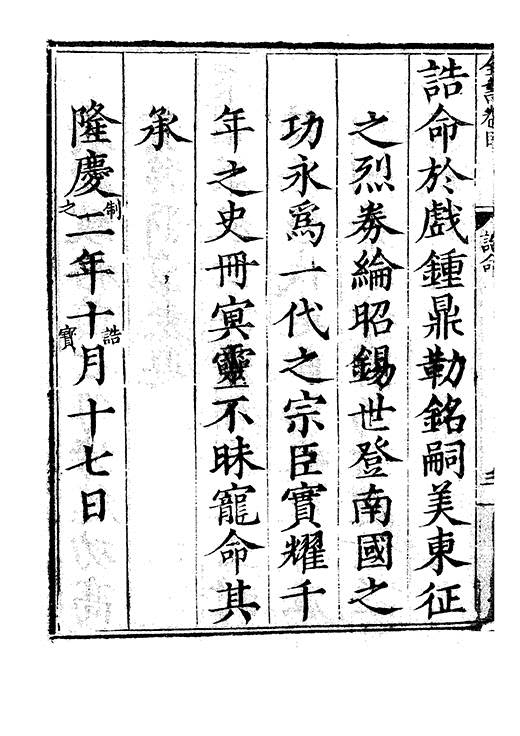 誥命於戲鍾鼎勒銘嗣美東征
之烈券綸昭錫世登南國之
功永爲一代之宗臣實耀千
年之史冊冥靈不昧寵命其
承
隆慶二年十月十七日
制誥
之寶
誥命